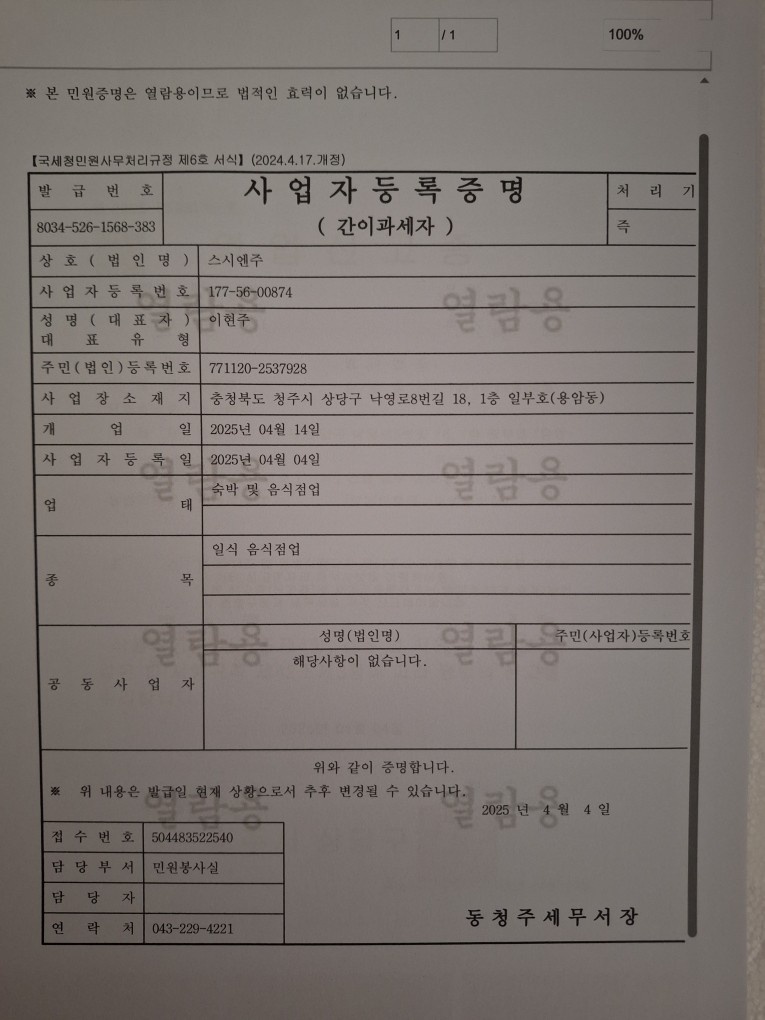 1 / 1 100%
※ 본 민원증명은 열람용이므로 법적인 효력이 없습니다.
【국세청민원사무처리규정 제6호 서식】(2024.4.17.개정)
발 급 번 호
8034-526-1568-383
사 업 자 등 록 증 명
( 간이과세자 )
처 리 기
즉
상 호 ( 법 인 명 ) 스시엔주
사 업 자 등 록 번 호 177-56-00874
성 명 ( 대 표 자 ) 이현주
대 표 유 형
주민(법인)등록번호 771120-2537928
사 업 장 소 재 지 충청북도 청주시 상당구 낙영로8번길 18, 1층 일부호(용암동)
개 업 일 2025년 04월 14일
사 업 자 등 록 일 2025년 04월 04일
업 태 숙박 및 음식점업
종 목 일식 음식점업
공 동 사 업 자
성명(법인명) 주민(사업자)등록번호
해당사항이 없습니다.
위와 같이 증명합니다.
※ 위 내용은 발급일 현재 상황으로서 추후 변경될 수 있습니다.
2025 년 4 월 4 일
접 수 번 호 504483522540
담 당 부 서 민원봉사실
담 당 자
연 락 처 043-229-4221
동 청 주 세 무 서 장
열람용 열람용
열람용 열람용
열람용 열람용
열람용 열람용